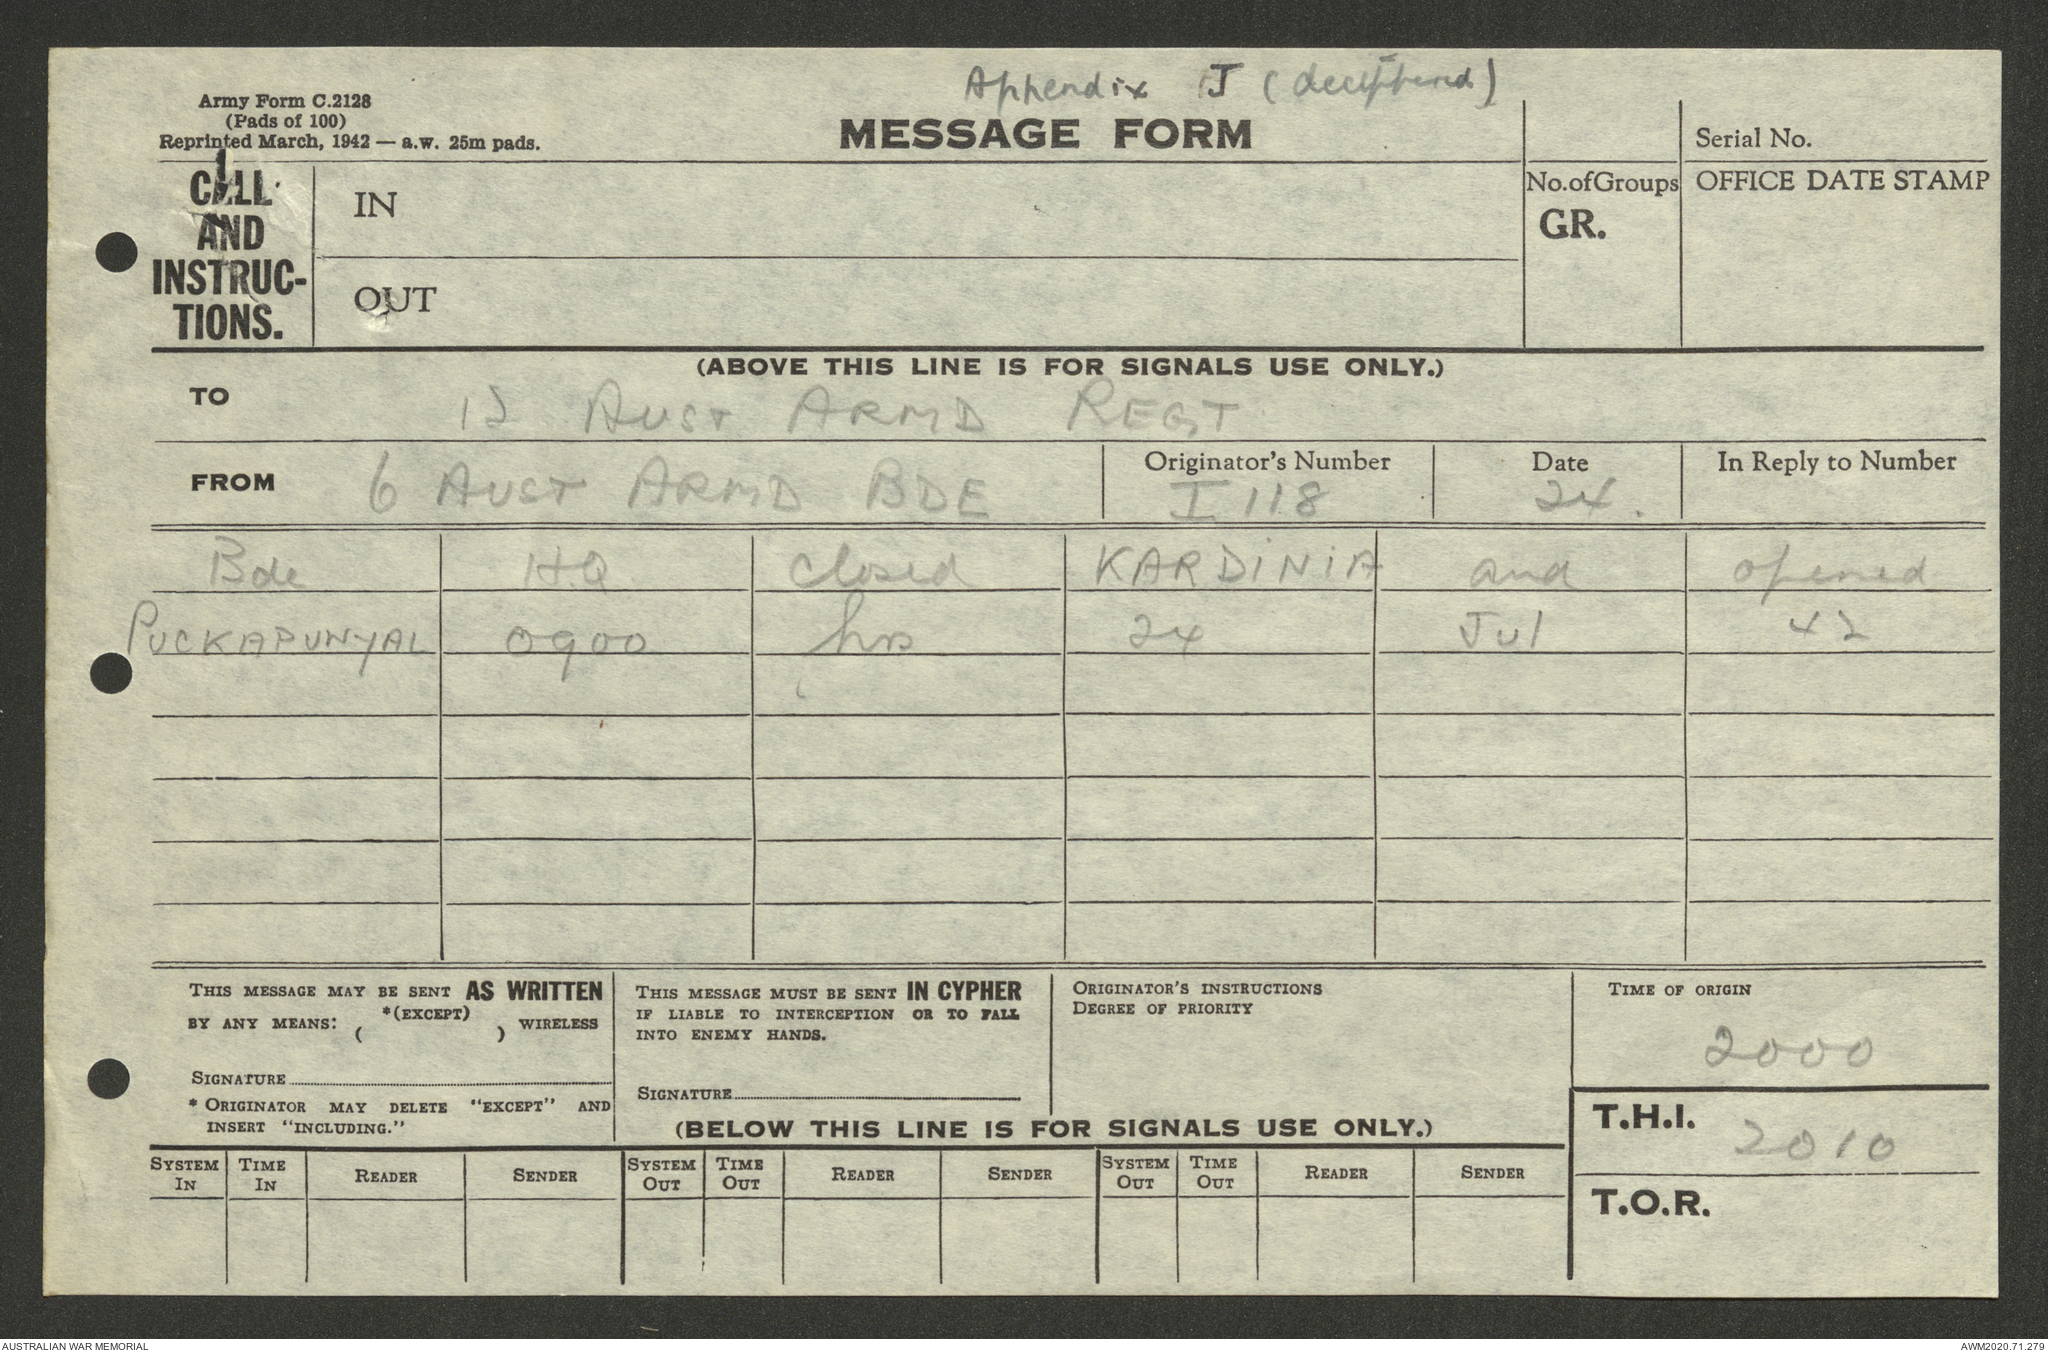 Appendix J (deciphered)
Army Form C.2128
(Pads of 100)
Reprinted March, 1942 — a.w. 25m pads.
MESSAGE FORM
Serial No.
CALL AND INSTRUC-TIONS.
IN
OUT
No. of Groups
GR.
OFFICE DATE STAMP
(ABOVE THIS LINE IS FOR SIGNALS USE ONLY.)
TO 12 AUST ARMD REGT
FROM 6 AUST ARMD BDE
Originator's Number I 118
Date 24.
In Reply to Number
Bde HQ closed KARDINIA and opened
PUCKAPUNYAL 0900 hrs 24 Jul 42
THIS MESSAGE MAY BE SENT AS WRITTEN
BY ANY MEANS: *(EXCEPT) ( ) WIRELESS
SIGNATURE
* ORIGINATOR MAY DELETE "EXCEPT" AND
INSERT "INCLUDING."
THIS MESSAGE MUST BE SENT IN CYPHER
IF LIABLE TO INTERCEPTION OR TO FALL
INTO ENEMY HANDS.
SIGNATURE
ORIGINATOR'S INSTRUCTIONS
DEGREE OF PRIORITY
TIME OF ORIGIN
2000
(BELOW THIS LINE IS FOR SIGNALS USE ONLY.)
T.H.I. 2010
T.O.R.
SYSTEM IN TIME IN READER SENDER SYSTEM OUT TIME OUT READER SENDER SYSTEM OUT TIME OUT READER SENDER
AUSTRALIAN WAR MEMORIAL
AWM2020.71.279